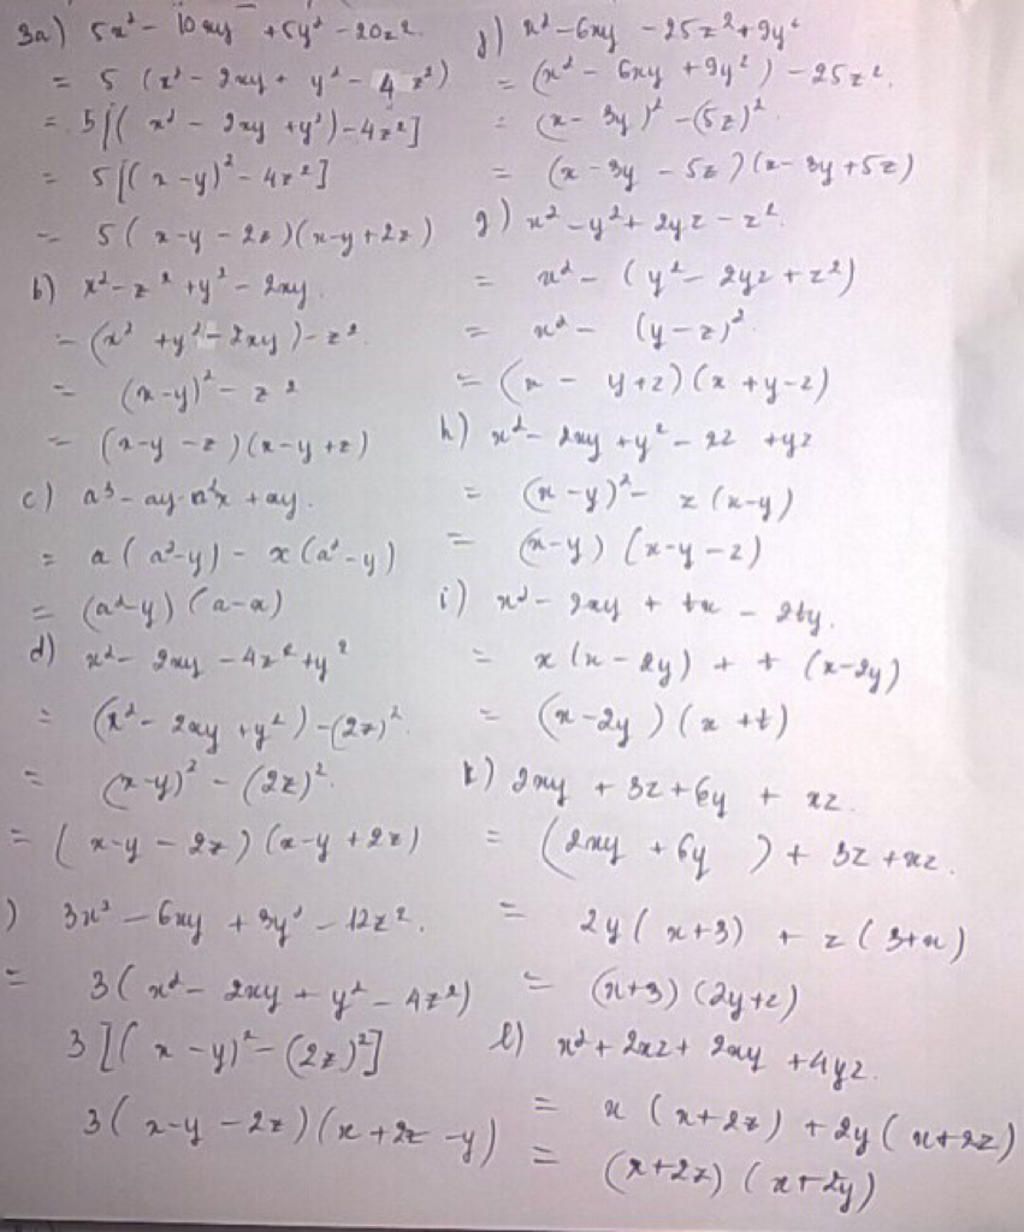 3a) 5x² - 10xy + 5y² - 20z².
= 5 (x² - 2xy + y² - 4z²)
= 5[(x² - 2xy + y²) - 4z²]
= 5[(x - y)² - 4z²]
= 5(x-y - 2z)(x-y + 2z)
b) x² - z² + y² - 2xy.
= (x² + y² - 2xy) - z².
= (x-y)² - z²
= (x-y - z)(x-y + z)
c) a³ - ay - a²x + xy.
= a(a²-y) - x(a²-y)
= (a²-y)(a-x)
d) x² - 2xy - 4z² + y²
= (x² - 2xy + y²) - (2z)².
= (x-y)² - (2z)².
= (x-y - 2z)(x-y + 2z)
) 3x² - 6xy + 3y² - 12z².
= 3(x² - 2xy + y² - 4z²)
3[(x - y)² - (2z)²]
3(x-y - 2z)(x + 2z - y)
f) x² - 6xy - 25z² + 9y²
= (x² - 6xy + 9y²) - 25z².
= (x - 3y)² - (5z)².
= (x - 3y - 5z)(x - 3y + 5z)
g) x² - y² + 2yz - z².
= x² - (y² - 2yz + z²)
= x² - (y - z)².
= (x - y + z)(x + y - z)
h) x² - 2xy + y² - xz + yz
= (x - y)² - z(x - y)
= (x-y)(x-y - z)
i) x² - 2xy + tx - 2ty.
= x(x - 2y) + t(x - 2y)
= (x - 2y)(x + t)
k) 2xy + 3z + 6y + xz.
= (2xy + 6y) + 3z + xz.
= 2y(x+3) + z(3+x)
= (x+3)(2y+z)
l) x² + 2xz + 2xy + 4yz.
= x(x+2z) + 2y(x+2z)
= (x+2z)(x+2y)